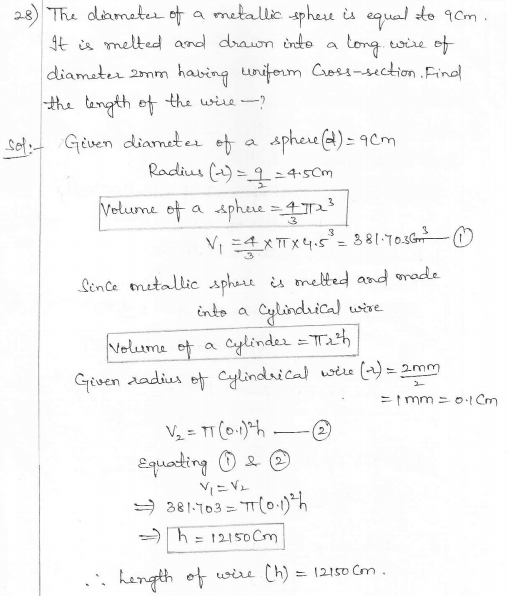 28) The diameter of a metallic sphere is equal to 9cm.
It is melted and drawn into a long wire of
diameter 2mm having uniform Cross-section. Find
the length of the wire —?
Sol:- Given diameter of a sphere (d) = 9cm
Radius (r) = 9/2 = 4.5cm
Volume of a sphere = 4/3 πr³
V₁ = 4/3 × π × 4.5³ = 381.703cm³ — ①
Since metallic sphere is melted and made
into a cylindrical wire
Volume of a cylinder = πr²h
Given radius of cylindrical wire (r) = 2mm/2
= 1mm = 0.1cm
V₂ = π(0.1)²h — ②
Equating ① & ②
V₁ = V₂
⇒ 381.703 = π(0.1)²h
⇒ h = 12150cm
∴ Length of wire (h) = 12150cm.